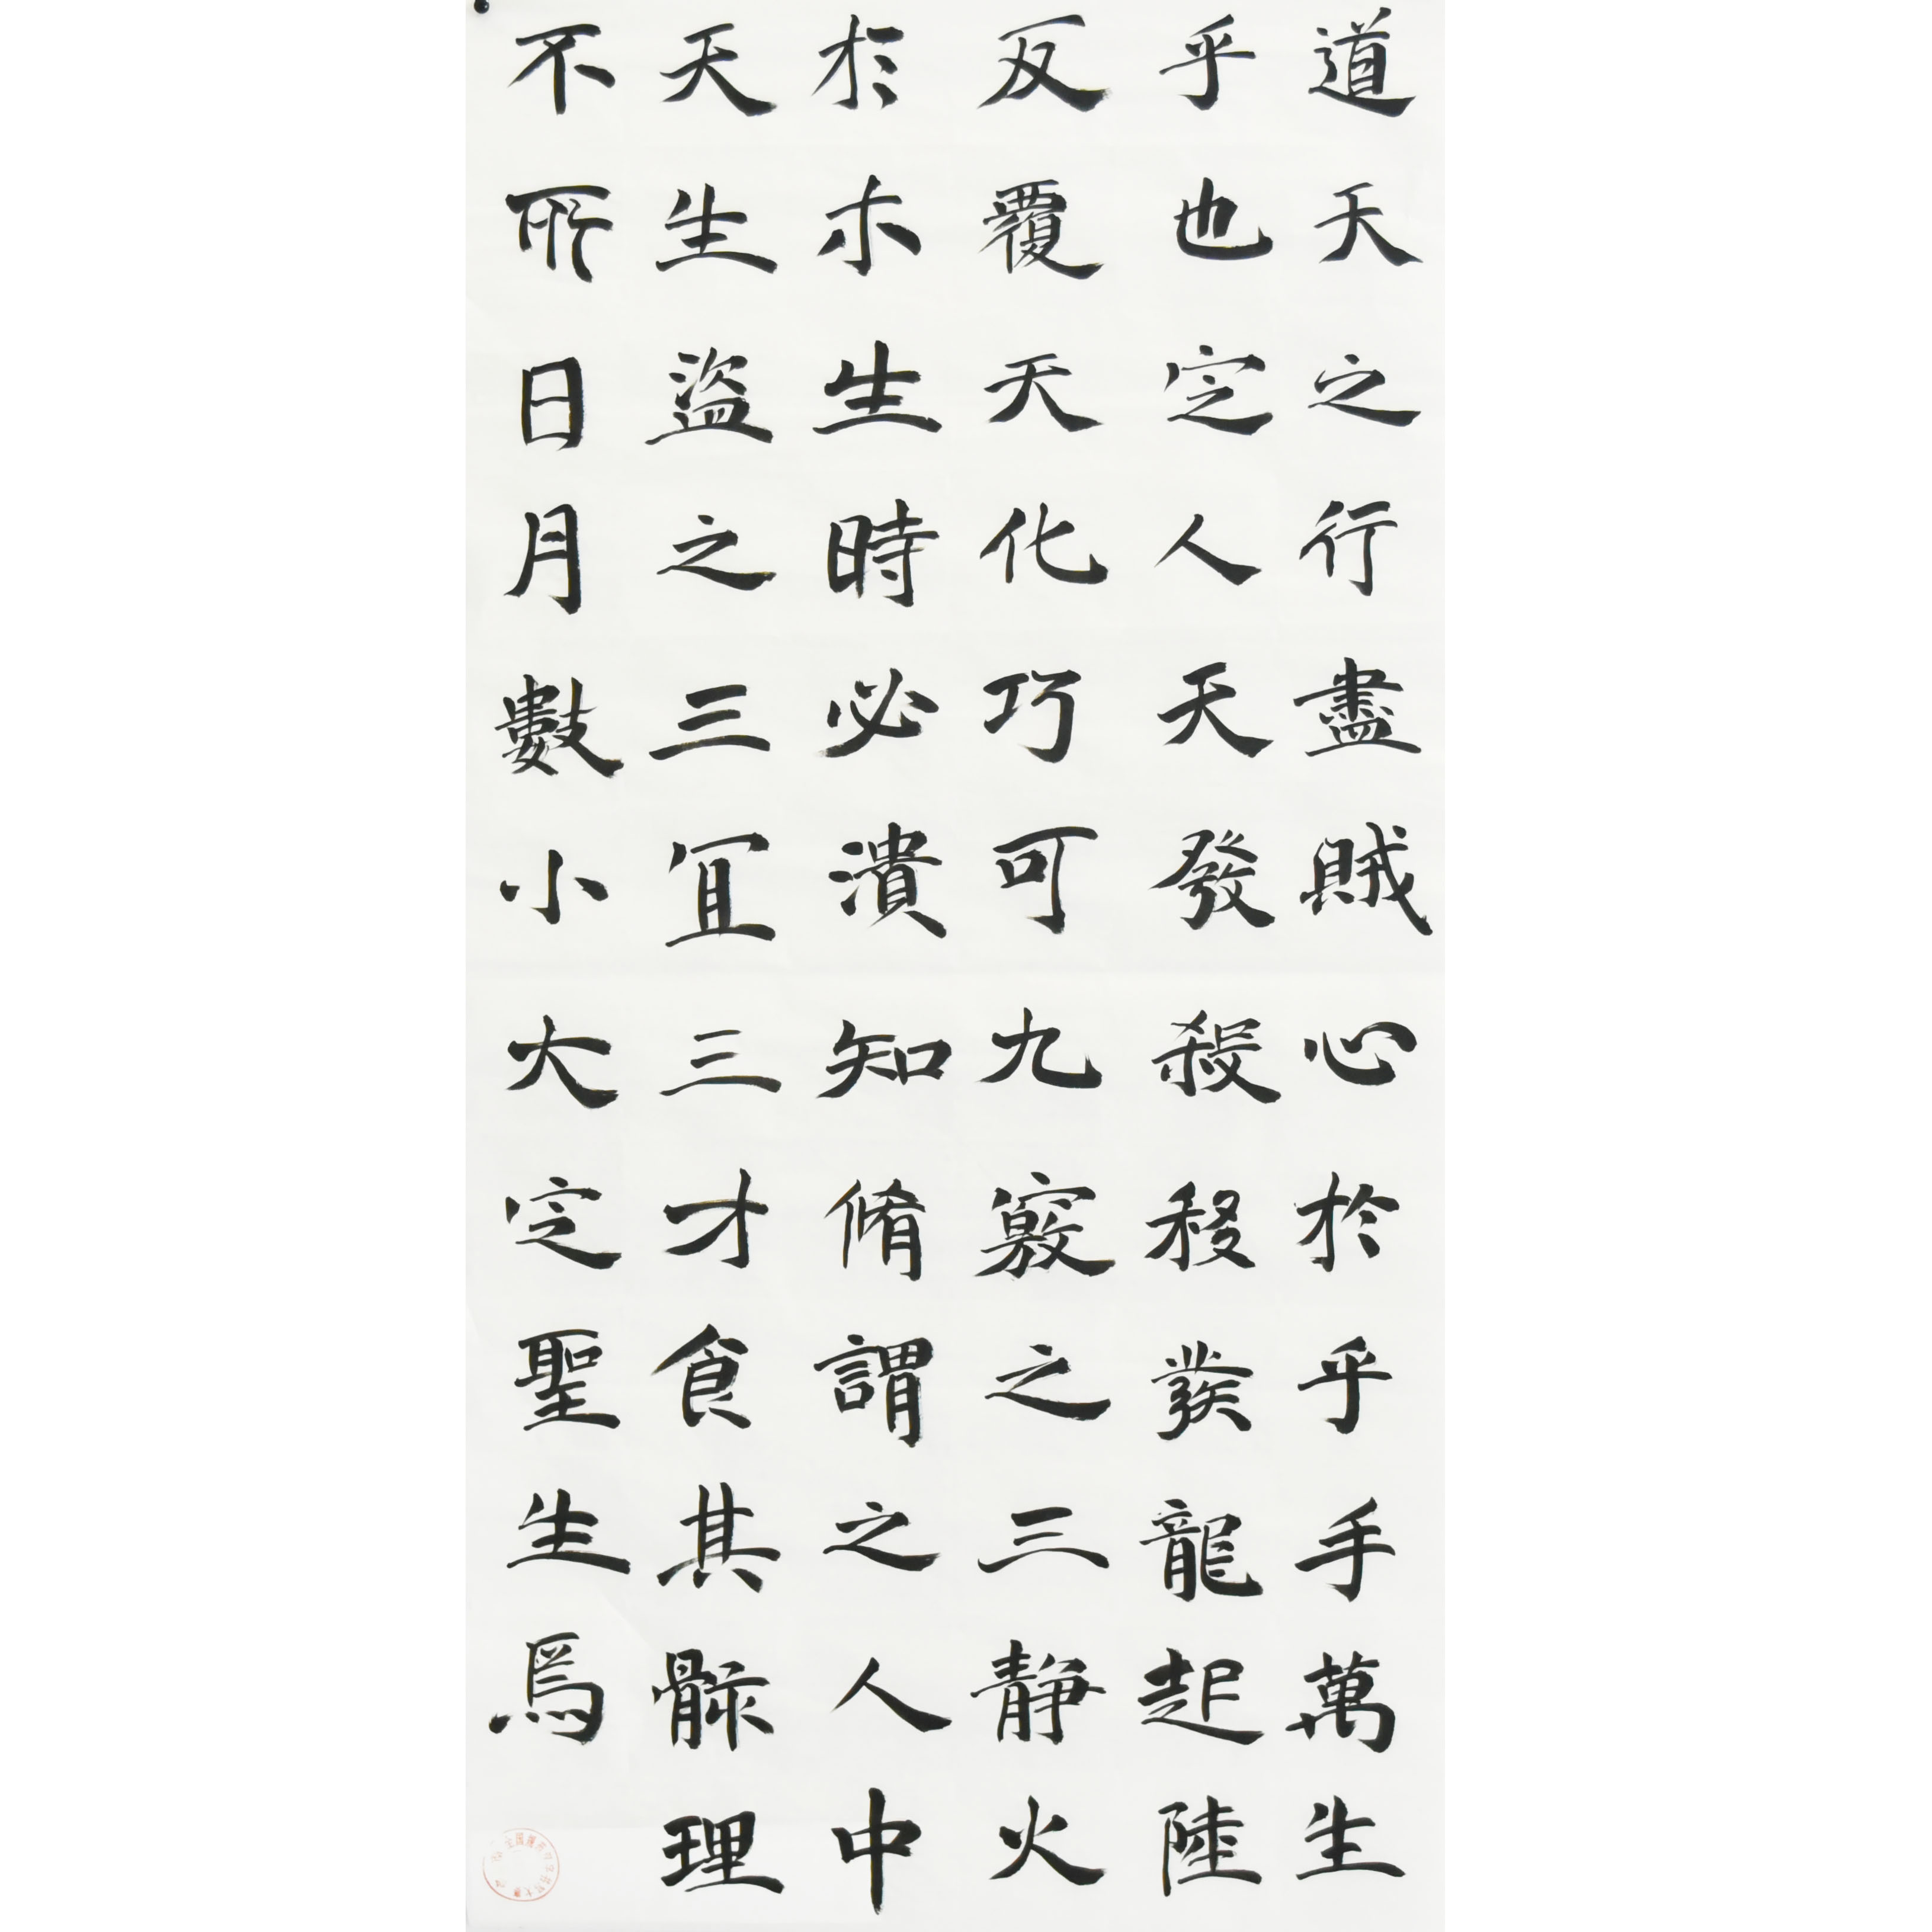 道天之行盡賊心於乎手萬生
乎也定人天發殺移發龍起陸
反覆天化巧可九竅之三靜火
於木生時必潰知脩謂之人中
天生盜之三宜三才食其骸理
不所日月數小大定聖生焉